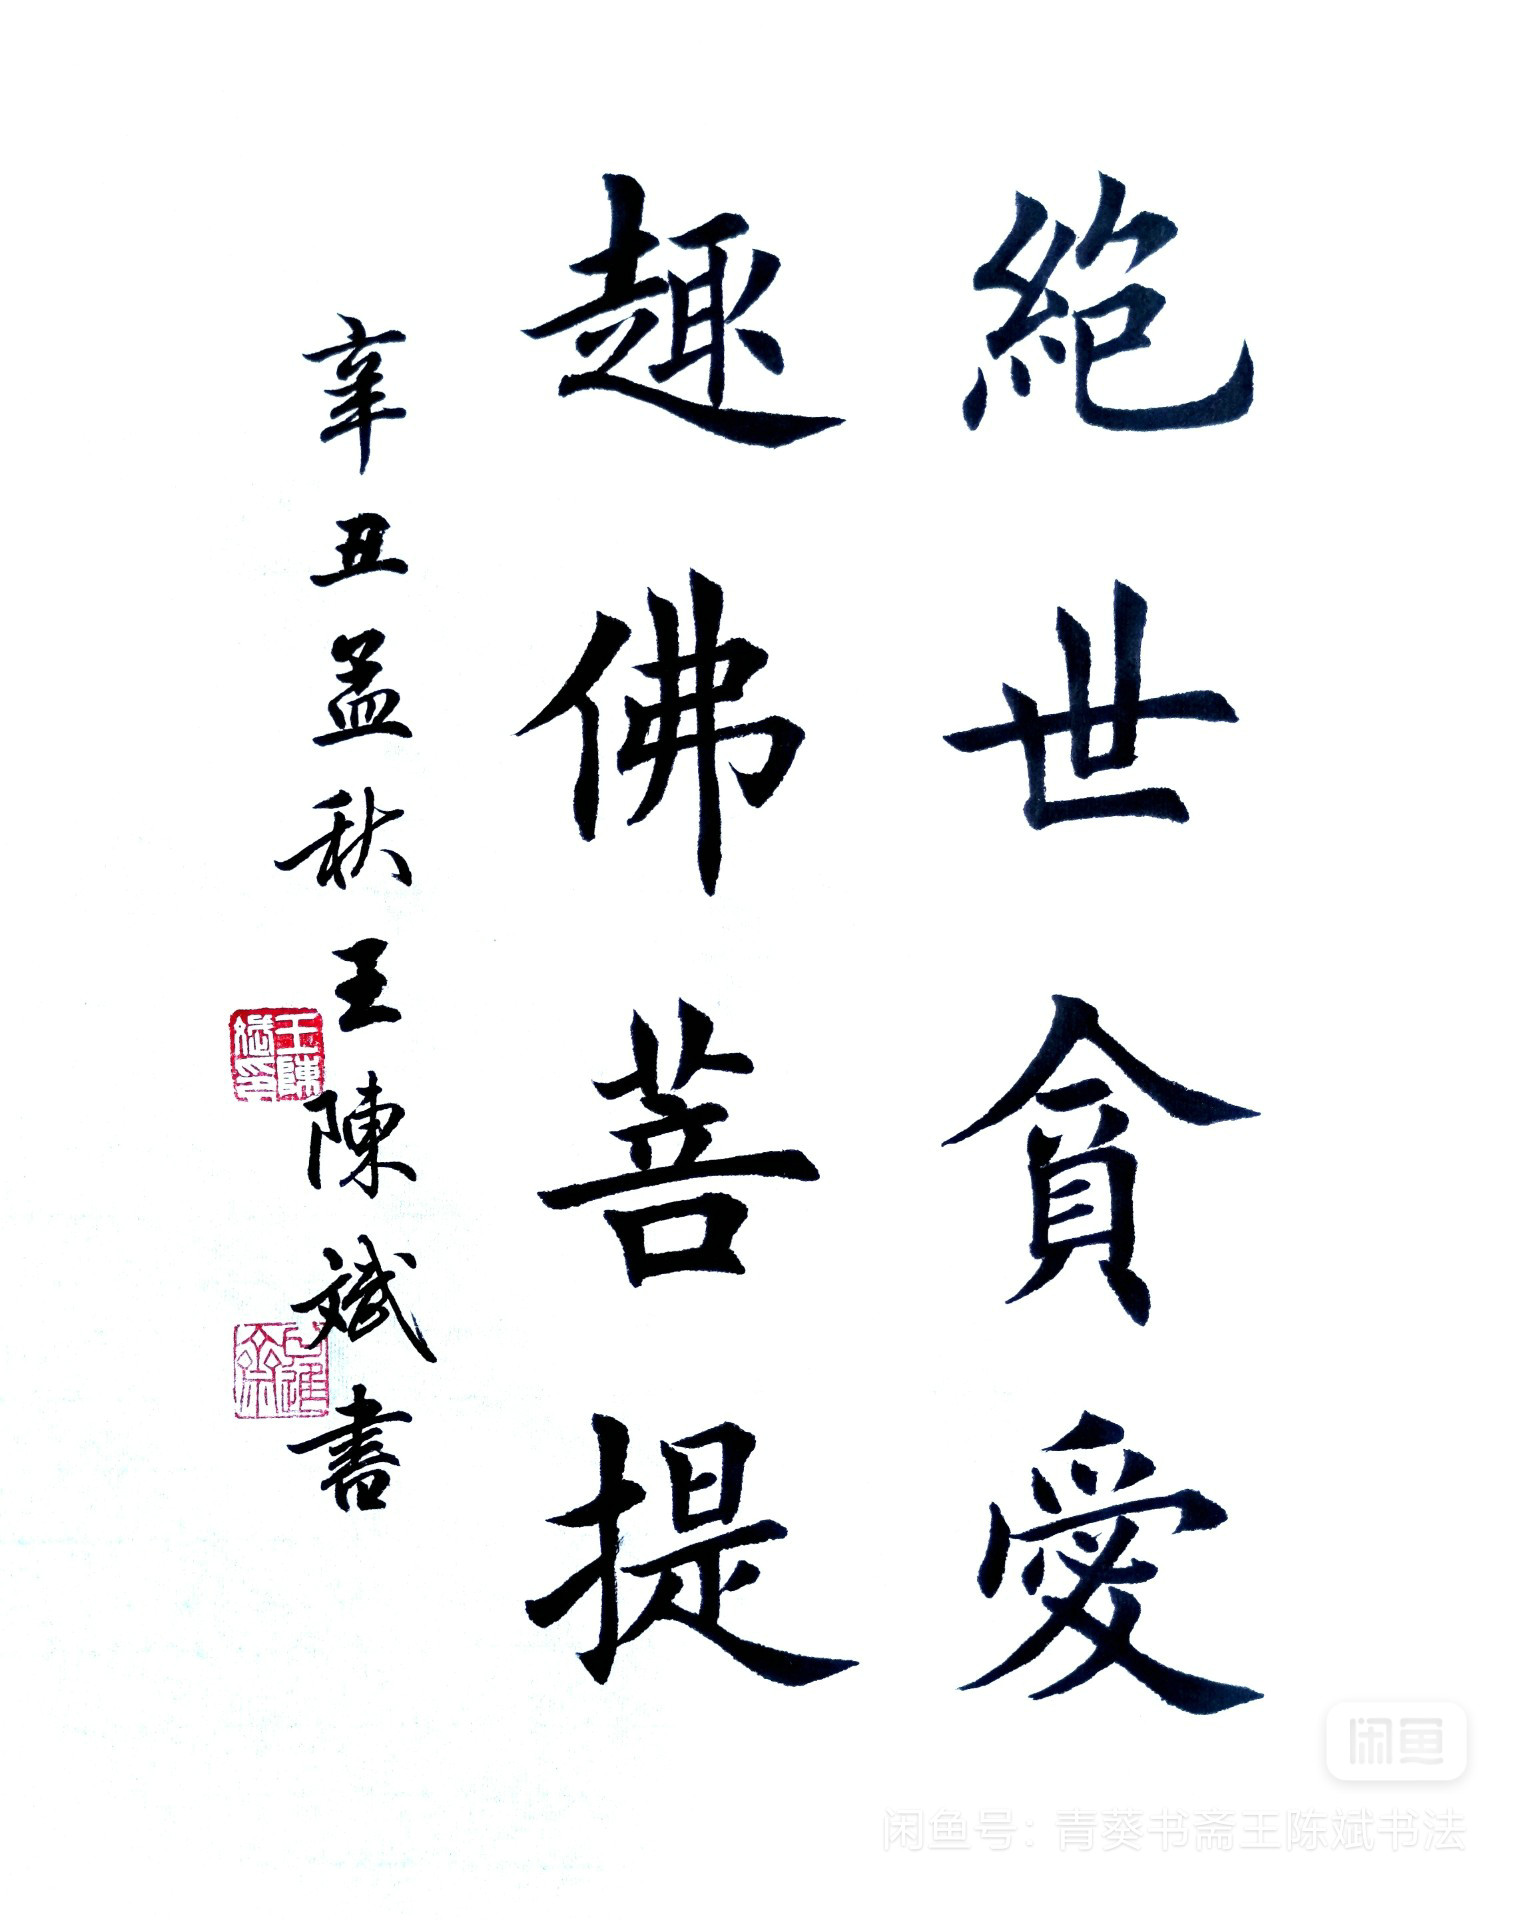 絕世貪愛
趣佛菩提
辛丑孟秋王陳斌書
王陳斌印
闲鱼
闲鱼号：青葵书斋王陈斌书法